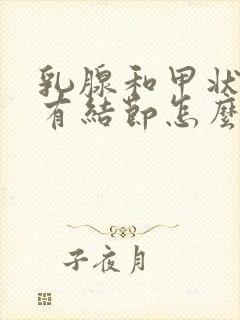 乳腺和甲状
有結節怎麼
子夜月